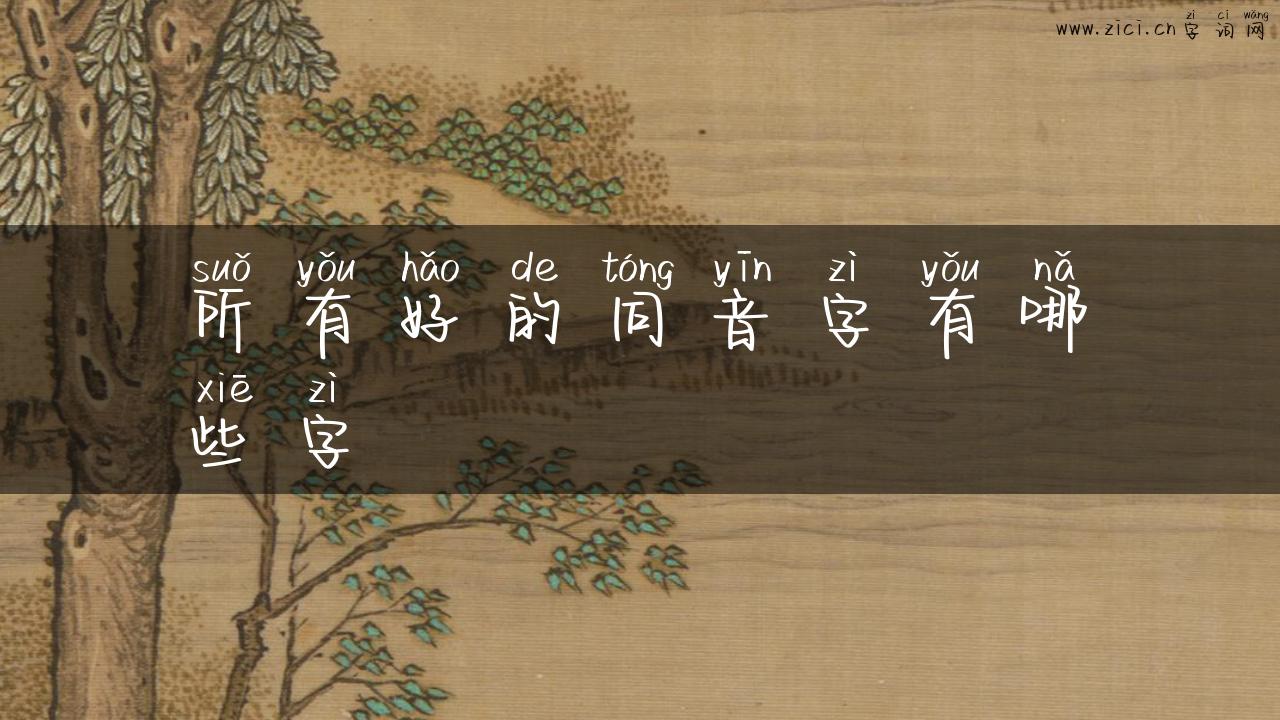 zì cí wǎng
www.zici.cn 字 词 网
suǒ yǒu hǎo de tóng yīn zì yǒu nǎ
所 有 好 的 同 音 字 有 哪
xiē zì
些 字